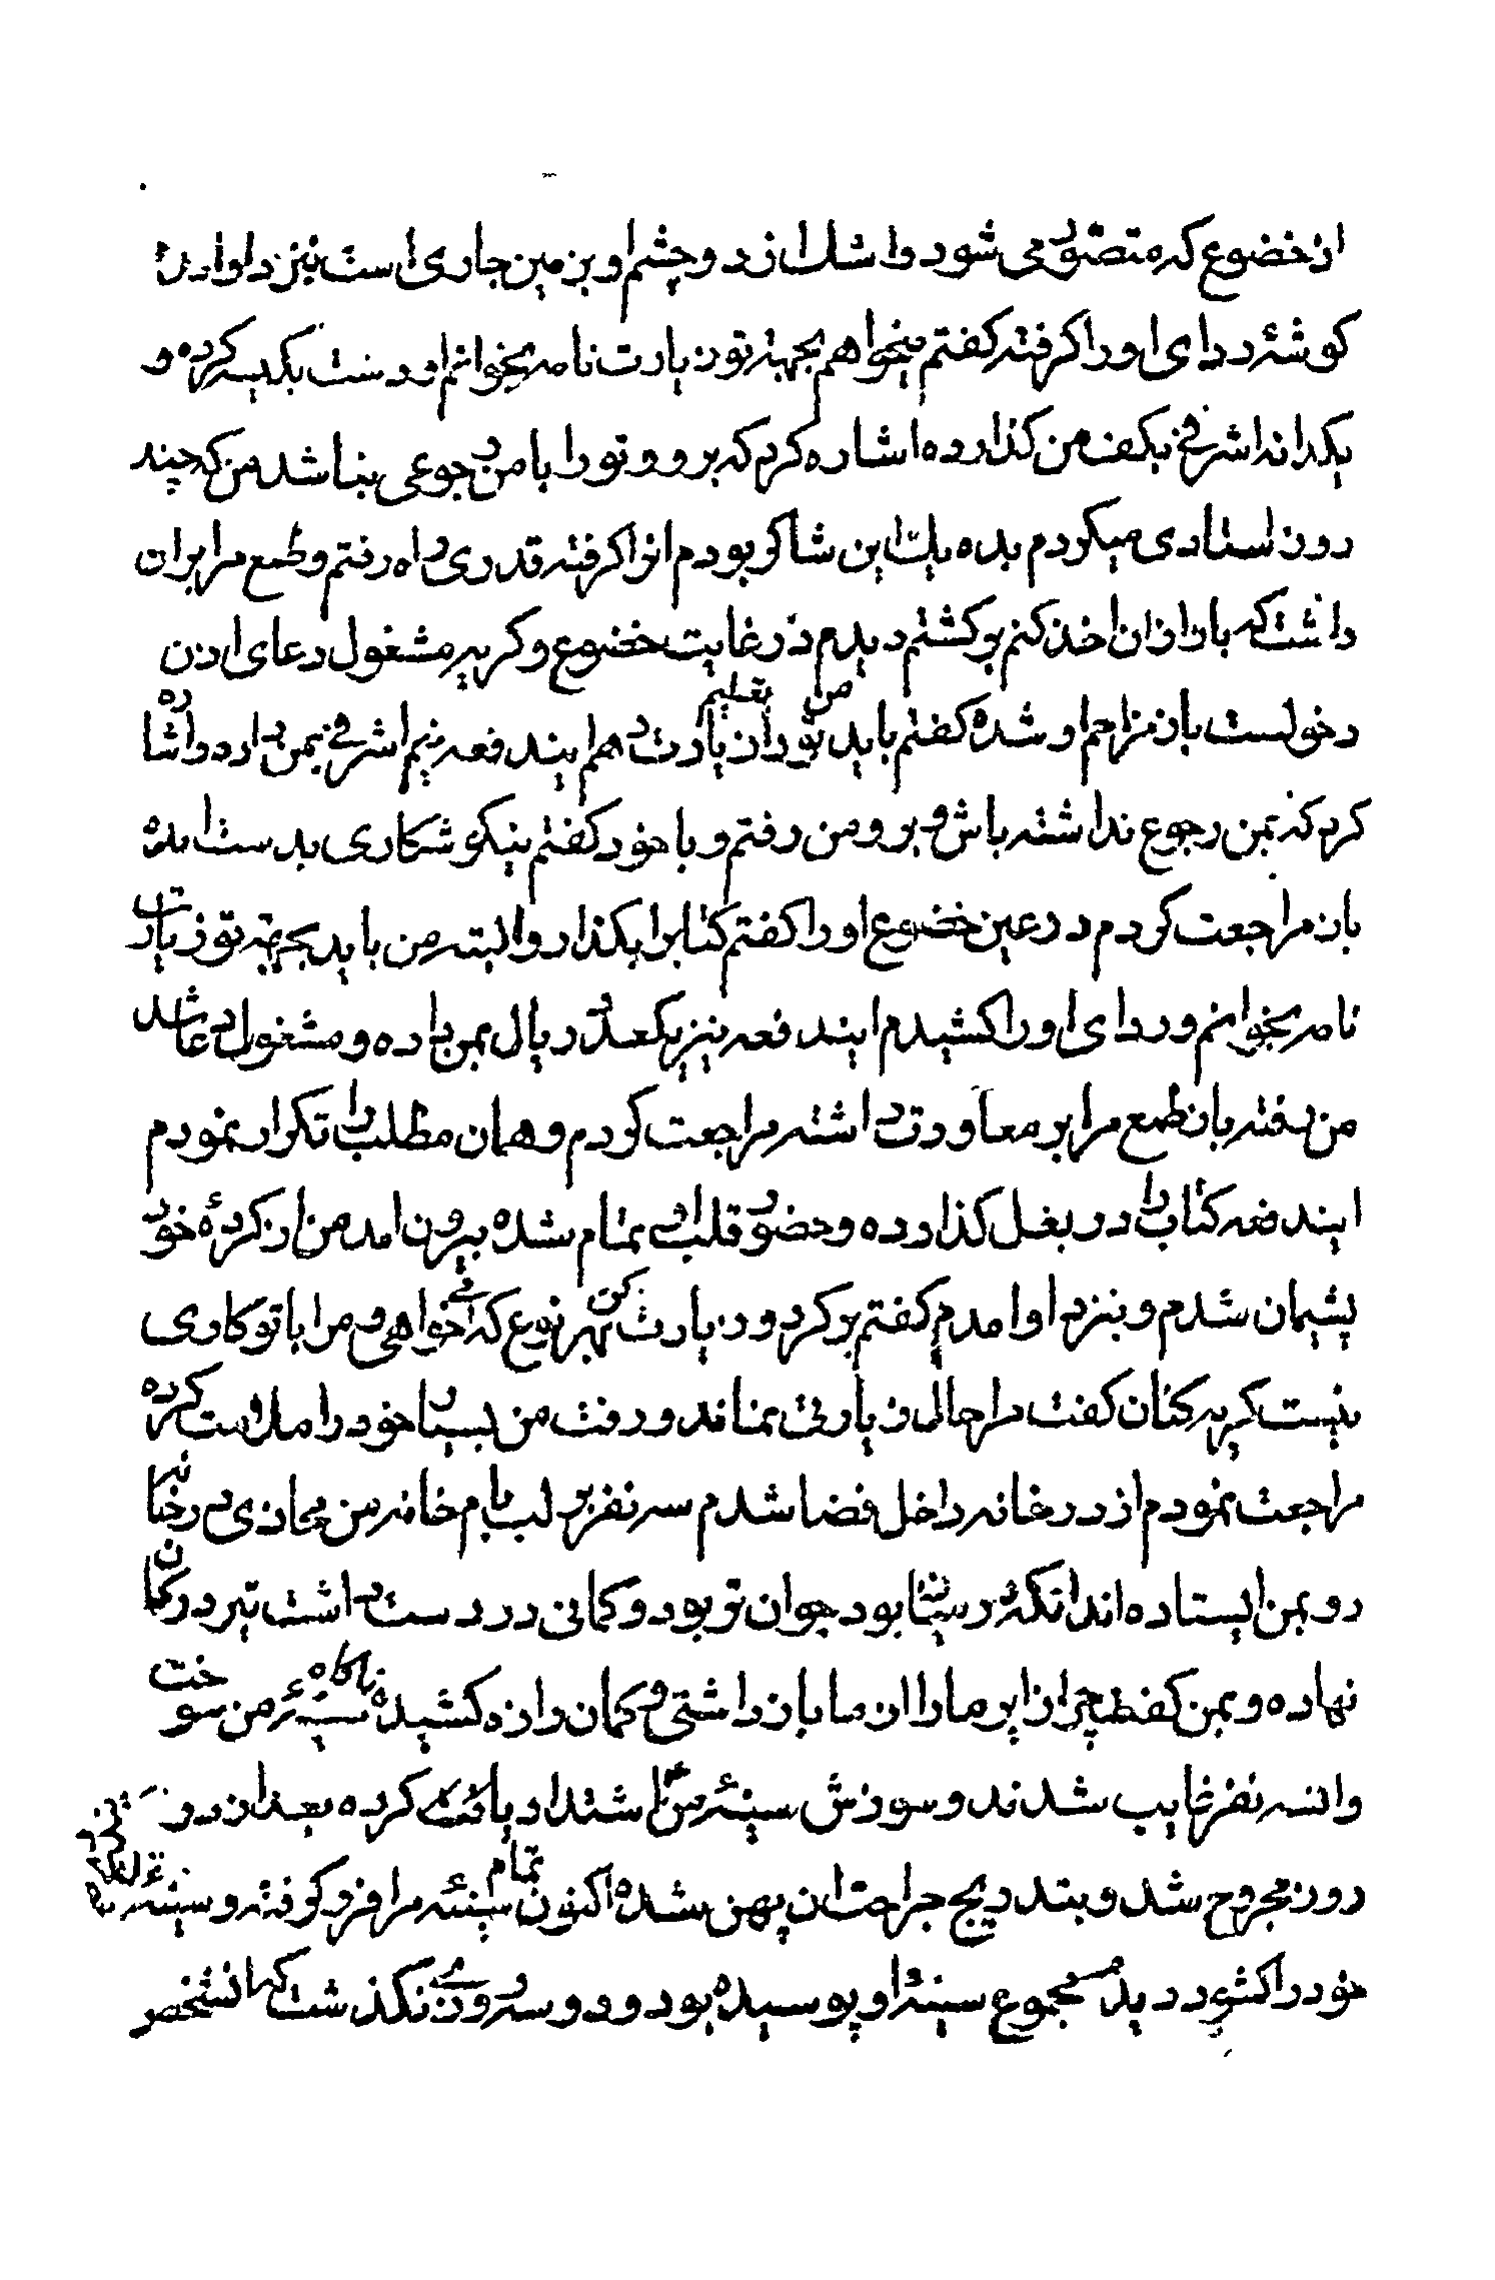 از خضوع که متصور می شود و اشک از دو چشم او بزمین جاری است نیز د او آمده
کوشهٔ ردای او را کرفته کفتم میخواهم بجهة تو زیارت نامه بخوانم او دست بکیسه کرده و
یکدانه اشرفی بکف من کذارده اشاره کرد که برو و تو را با من رجوعی نباشد من که چند
روز استادی میکردم بده یک این شاکر بودم انرا کرفته قدری راه رفتم و طمع مرا بران
داشت که باز از ان اخذ کنم برکشتم دیدم در غایت خضوع و کریه مشغول دعای اذن
دخولست باز مزاحم او شده کفتم باید من تو را تعلیم زیارت دهم ایندفعه نیم اشرفی بمن داده و اشاره
کرد که بمن رجوع نداشته باش و برو من رفتم و با خود کفتم نیکو شکاری بدست امده
باز مراجعت کردم در عین خضوع او را کفتم کتابرا بکذار و البته من باید بجهة تو زیارت
نامه بخوانم و ردای او را کشیدم ایندفعه نیز یکعدد ریال بمن داده و مشغول دعا شد
من رفته باز طمع مرا بر معاودت داشته مراجعت کردم و همان مطلب را تکرار نمودم
ایندفعه کتاب را در بغل کذارده و حضور قلب او تمام شده بیرون امد من از کردهٔ خود
پشیمان شدم و بنزد او امدم کفتم برکرد و زیارت کن بهر نوع که میخواهی و مرا با تو کاری
نیست کریه کنان کفت مرا حال زیارتی نماند و رفت من بسیار خود را ملامت کرده
مراجعت نمودم از در خانه داخل فضا شدم سه نفر بر لب بام خانه من محاذی در خانه
رو بمن ایستاده اند انکه در میان بود جوان تر بود و کمانی در دست داشت تیر در کمان
نهاده و بمن کفت چرا زایر ما را از ما باز داشتی و کمان را زه کشیده ناکاه سینهٔ من سوخت
و انسه نفر غایب شدند و سوزش سینهٔ من اشتداد یافت کرده بعد از دو
روز مجروح شد و بتدریج جراحت ان پهن شده اکنون تمام سینهٔ مرا فرو کوفته و سینهٔ
خود را کشود دیدم مجموع سینهٔ او پوسیده بود و دو سه روزی نکذشت که انشخص